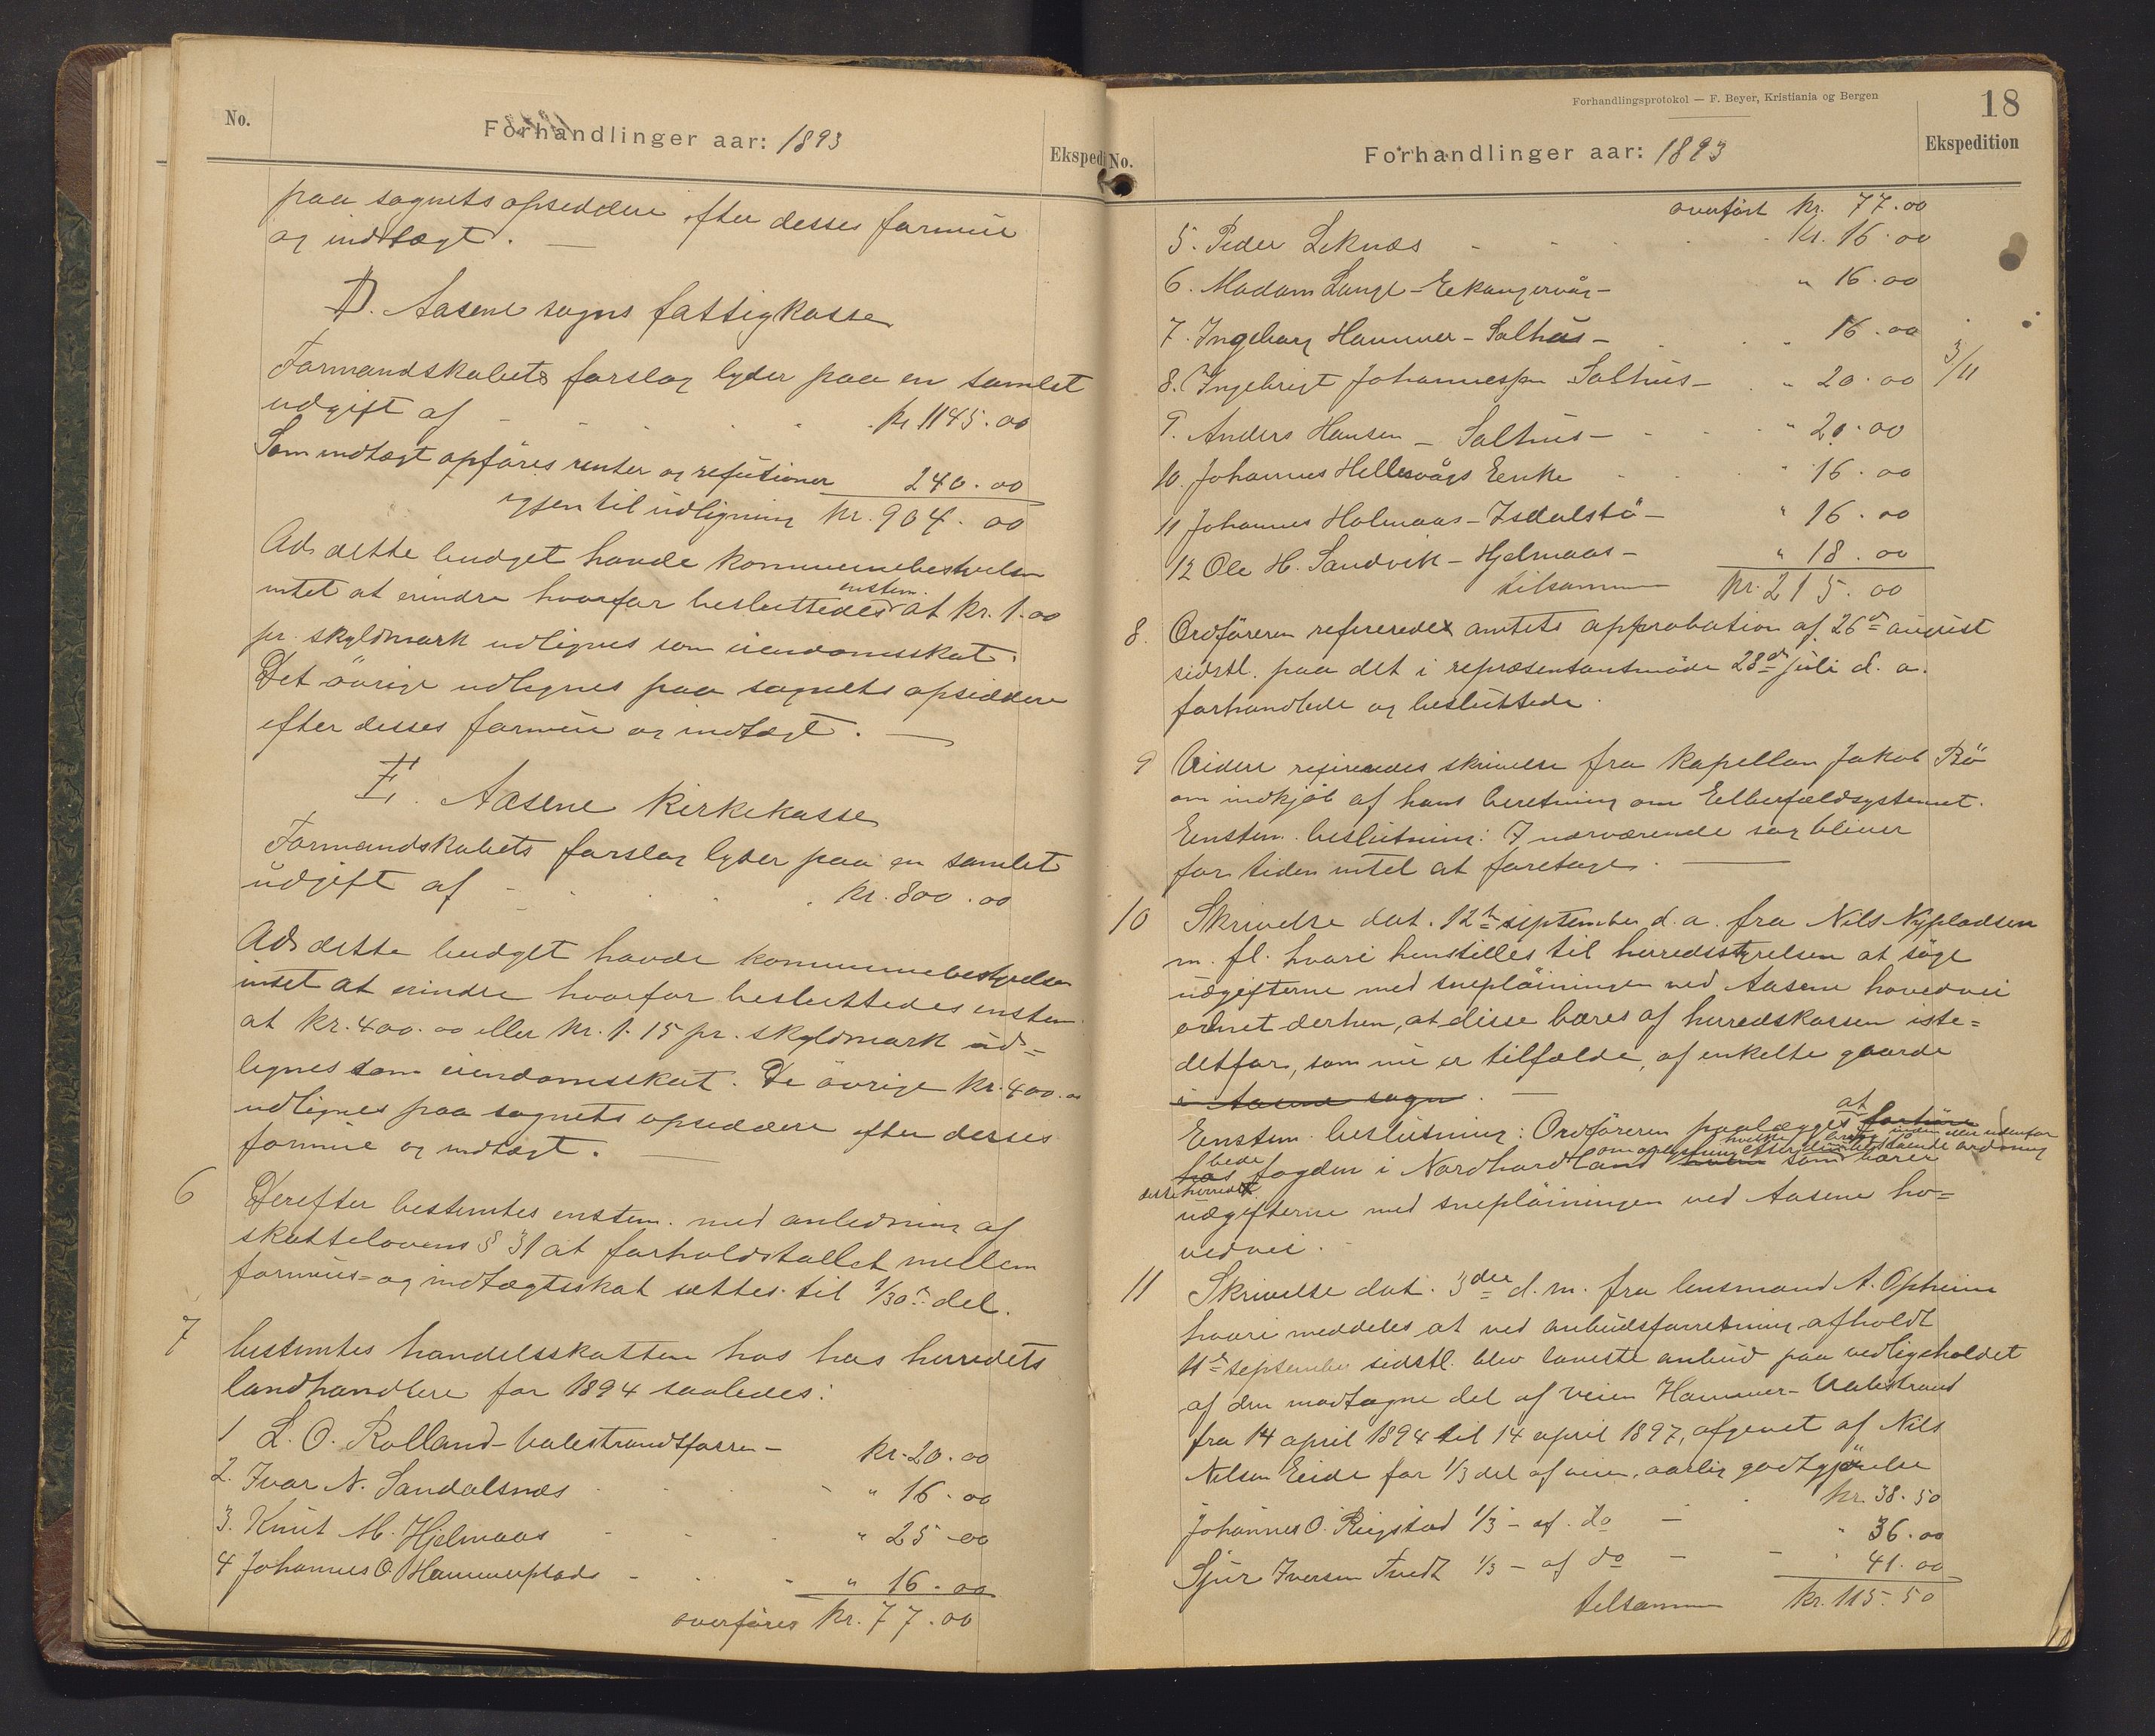 No.
Forhandlinger aar: 1893
Ekspedi
paa sognets opsiddere efter desses formue
og indtægt. —
D. Aasene sogns fattigkasse
Formandskabets forslag lyder paa en samlet
udgift af - - - - kr 1145.00
Som indtægt opføres renter og refusioner 240.00
igjen til udligning kr. 904.00
Ad dette budget havde kommunebestyrelsen
intet at erindre hvorfor besluttedes enstem. at kr. 1.00
pr. skyldmark udlignes som eiendomsskat.
Det övrige udlignes paa sognets opsiddere
efter desses formue og indtægt. —
E. Aasene kirkekasse
Formandskabets forslag lyder paa en samlet
udgift af - - - kr. 800.00
Ad dette budget havde kommunebestyrelsen
intet at erindre hvorfor besluttedes enstem.
at kr. 400.00 eller kr. 1.15 pr. skyldmark ud=
lignes som eiendomsskat. De övrige kr. 400.00
udlignes paa sognets opsiddere efter desses
formue og indtægt. —
6 Derefter bestemtes enstem. med anledning af
skattelovens § 31 at forholdstallet mellem
formues- og indtægtsskat sættes til 1/30 del.
7 bestemtes handelsskatten hos hos herredets
landhandlere for 1894 saaledes:
1 L. O. Rolland - Valestrandsfossen - kr. 20.00
2. Ivar N. Sandalsnæs - - " 16.00
3. Knut M. Hjelmaas - - " 25.00
4 Johannes O. Hammerplads - - " 16.00
overføres kr. 77.00
Forhandlingsprotokol — F. Beyer, Kristiania og Bergen
18
No.
Forhandlinger aar: 1893
Ekspedition
overført kr. 77.00
5. Peder Leknæs - - - kr. 16.00
6. Madam Lange - Eekangervåg - " 16.00
7. Ingeborg Hammer - Salhus - - " 16.00
8. Ingebrigt Johannessen Salhus - " 20.00 3/11
9. Anders Hansen - Salhus - - " 20.00
10. Johannes Hellesvågs Enke - " 16.00
11 Johannes Holmaas - Isdalstö - " 16.00
12 Ole H. Sandvik - Hjelmaas - " 18.00
tilsammen kr. 215.00
8. Ordføreren refererede amtets approbation af 26de august
sidstl. paa det i repræsentantmøde 28de juli d. a.
forhandlede og besluttede.
9 Videre refereredes skrivelse fra kapellan Jakob Bö
om indkjøb af hans beretning om Elberfældsystemet.
Enstem. beslutning: I nærværende sag bliver
for tiden intet at foretage. —
10 Skrivelse dat. 12te september d. a. fra Nils Nypladsen
m. fl. hvori henstilles til herredsstyrelsen at søge
udgifterne med sneplöiningen ved Aasene hovedvei
ordnet derhen, at disse bæres af herredskassen iste=
detfor, som nu er tilfælde, af enkelte gaarde
i Aasene sogn. —
Enstem. beslutning: Ordføreren paalægges at forhöre
hos bede fogden i Nordhordland om oplysning hvilke som efter den bestående ordning bærer
inden eller udenfor
dette herred
udgifterne med sneplöiningen ved Aasene ho=
vedvei. —
11 Skrivelse dat. 3die d. m. fra lensmand A. Opheim
hvori meddeles at ved anbudsforretning afholdt
11te september sidstl. blev laveste anbud paa vedligeholdet
af den modtagne del af veien Hammer - Valestrand
fra 14 april 1894 til 14 april 1897, afgivet af Nils
Nilsen Eide for 1/3 del af veien, aarlig godtgjörelse
kr. 38.50
Johannes O. Rigstad 1/3 - af do - - " 36.00
Sjur Iversen Tvedt 1/3 - af do - - " 41.00
tilsammen kr. 115.50